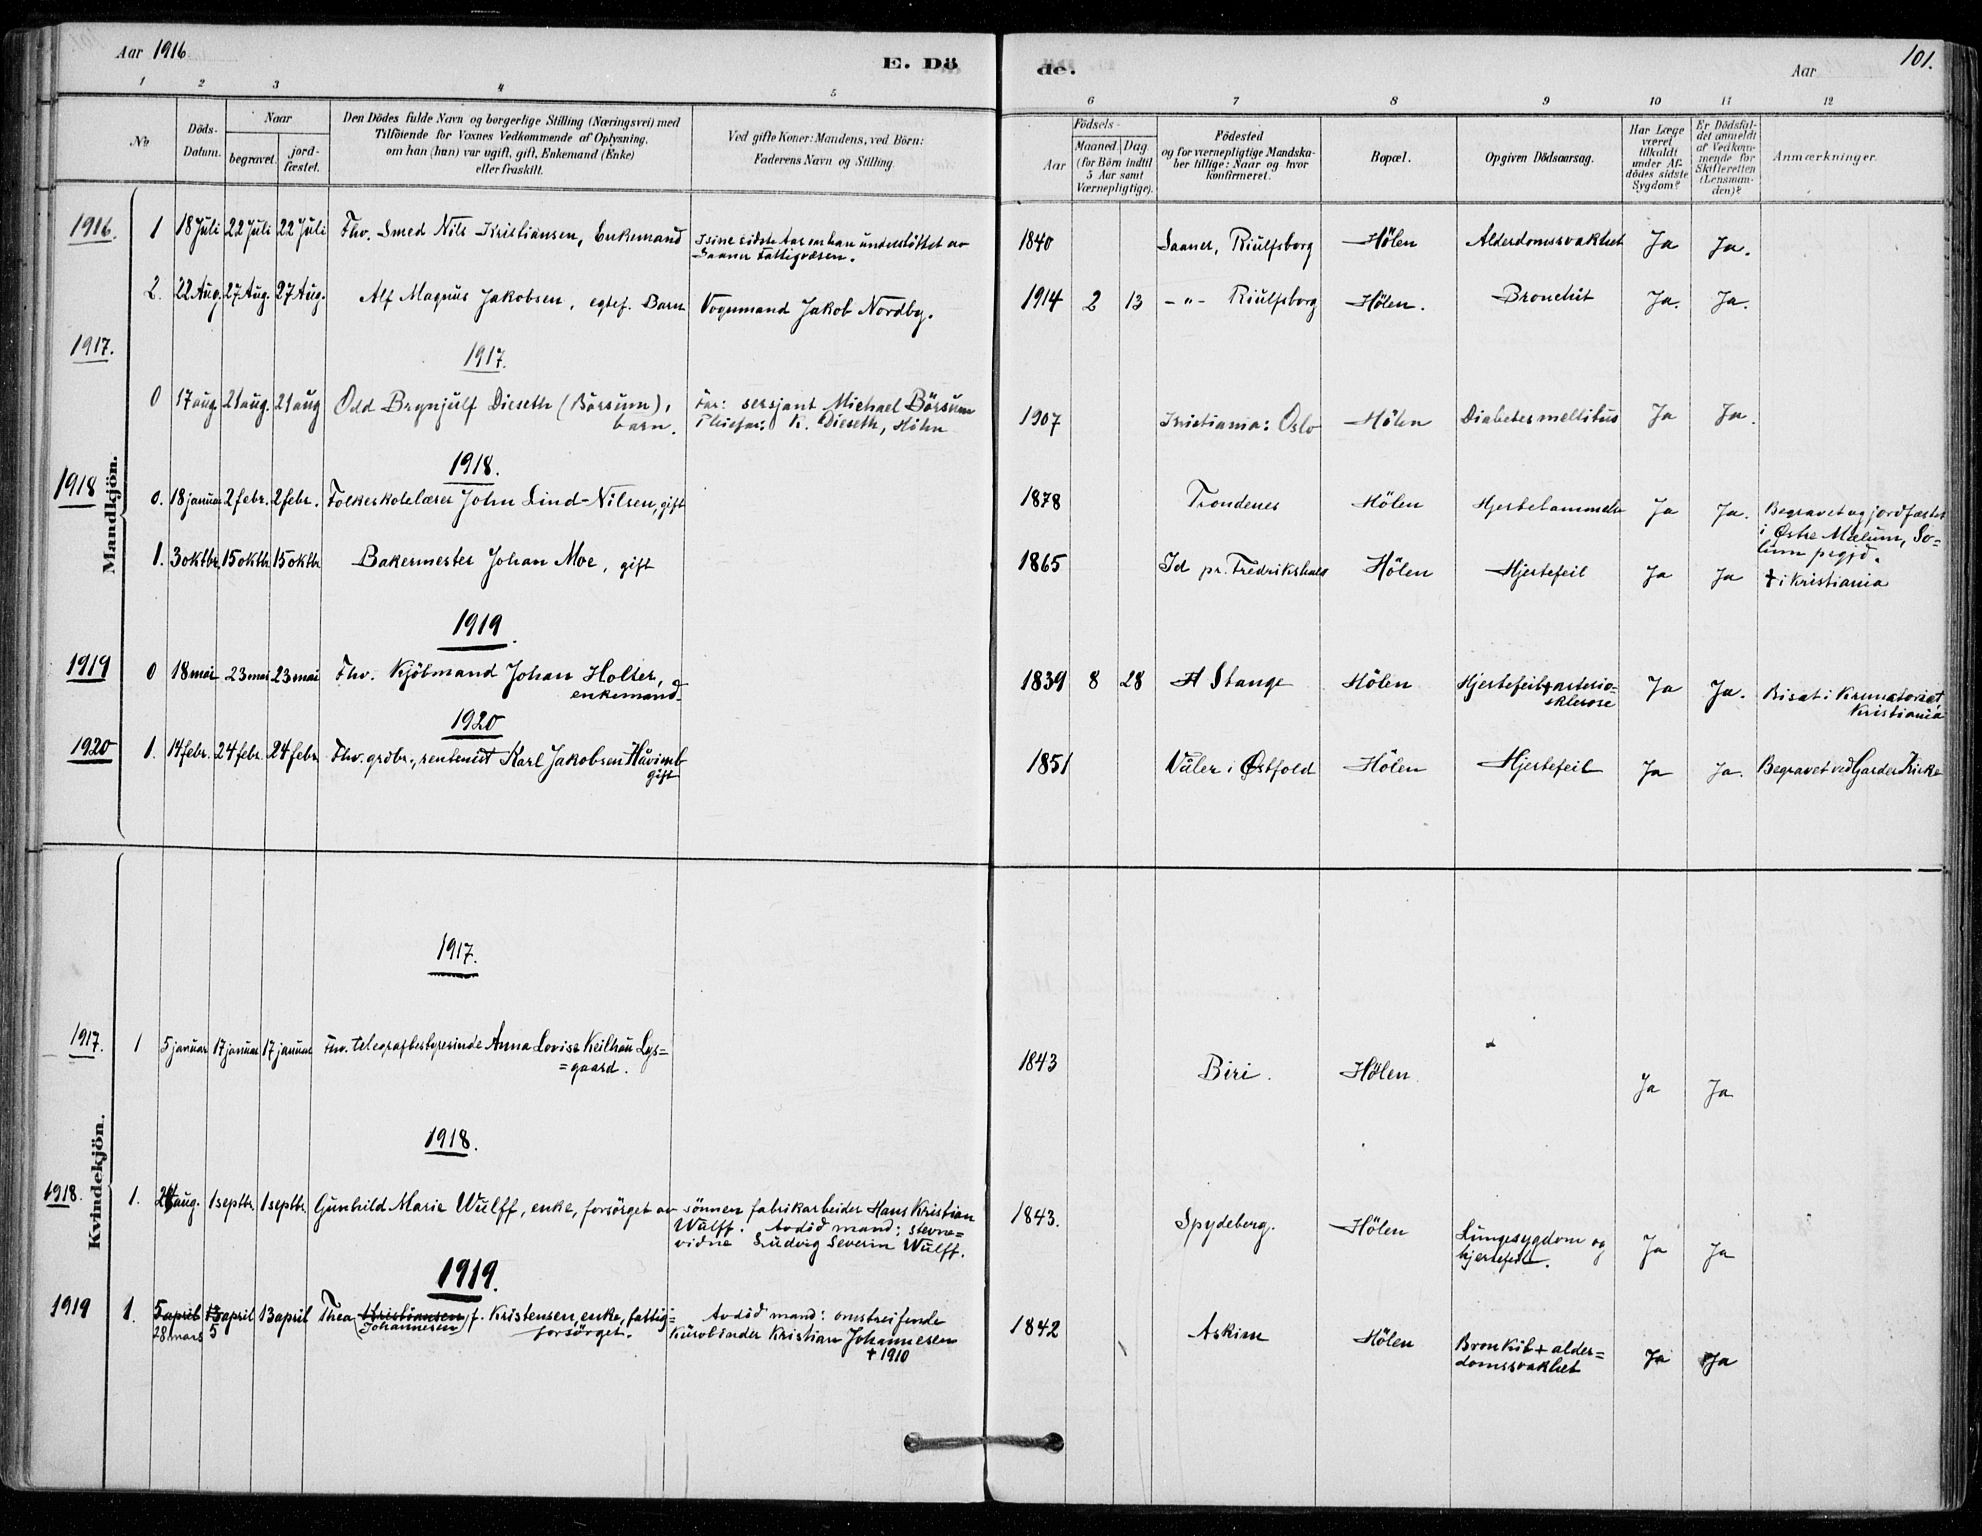 Aar 1916
E. Dö
de.
Aar
101.
1 2 3 4 5 6 7 8 9 10 11 12
No
Döds-
Datum.
Naar
begravet.
jord-
fæstet.
Den Dödes fulde Navn og borgerlige Stilling (Næringsvei) med
Tilföiende for Voxnes Vedkommende af Oplysning,
om han (hun) var ugift, gift, Enkemand (Enke)
eller fraskilt.
Ved gifte Koner: Mandens, ved Börn:
Faderens Navn og Stilling.
Födsels-
Aar
Maaned.
Dag
(for Börn indtil
5 Aar samt
Værnepligtige).
Födested
og for værnepligtige Mandska-
ber tillige: Naar og hvor
konfirmeret.
Bopæl.
Opgiven Dödsaarsag.
Har Læge
været
tilkaldt
under Af-
dödes sidste
Sygdom?
Er Dödsfal-
det anmeldt
af Vedkom-
mende for
Skifteretten
(Lensman-
den)?
Anmærkninger.
Mandkjön.
1916. 1 18 Juli 22 Juli 22 Juli Fhv. Smed Nils Kristiansen, Enkemand I sine sidste Aar var han understöttet av
Saaner Fattigvæsen.
1840 Saaner, Riulfsborg Hölen Alderdomssvakhet Ja Ja.
2. 22 Aug. 27 Aug. 27 Aug. Alf Magnus Jakobsen, egtef. Barn Vognmand Jakob Nordby. 1914 2 13 - " - Riulfsborg Hölen. Bronchit Ja. Ja.
1917.
1917.
0 17 aug. 21 aug. 21 aug Odd Brynjulf Dieseth (Börsum),
barn.
Far: sersjant Michael Börsum
Pleiefar: K. Dieseth, Hölen
1907 Kristiania: Oslo Hölen Diabetes mellitus Ja Ja.
1918.
1918 0. 18 januar 2 febr. 2 febr. Folkeskolelærer John Lind-Nilsen, gift 1878 Trondenes Hölen Hjertelammelse Ja Ja. Begravet og jordfæstet
i Østre Mælum, So=
lum prgjd.
1. 3 oktbr. 15 oktb 15 oktbr Bakermester Johan Moe, gift 1865 Id pr. Fredrikshald Hölen Hjertefeil Ja Ja † i Kristiania
1919
1919 0 18 mai 23 mai 23 mai Fhv. Kjöbmand Johan Holter,
enkemand
1839 8 28 Stange Hölen Hjertefeil + arterio-
sklerose
Ja Ja. Bisat i Krematoriet,
Kristiania
1920
1920 1. 14 febr. 24 febr. 24 febr. Fhv. grdbr., rentenist Karl Jakobsen
gift
1851 Våler i Østfold Hölen Hjertefeil Ja Ja. Begravet ved Garder Kirke
Kvindekjön.
1917.
1917. 1 5 januar 17 januar 17 januar Fhv. telegrafbestyrerinde Anna Lovise Keilhau Lys=
=gaard.
1843 Biri. Hölen. Ja Ja
1918.
1918. 1. aug. 1 septbr. 1 septbr. Gunhild Marie Wulff, enke, forsörget av sönnen fabrikarbeider Hans Kristian
Wulff. Avdöd mand: stevne=
vidne Ludvig Severin Wulff.
1843. Spydeberg. Hölen Lungesygdom og
hjertefeil.
Ja Ja
1919.
1919 1. 5 april 13 april 13 april Thea Kristiansen f. Kristensen, enke, fattig=
28 mars 5 (Johannesen) forsörget.
Avdöd mand: omstreifende
kurvbinder Kristian Johannesen
† 1910
1842 Askim Hölen Bronkit + alder=
domssvakhet
Ja Ja